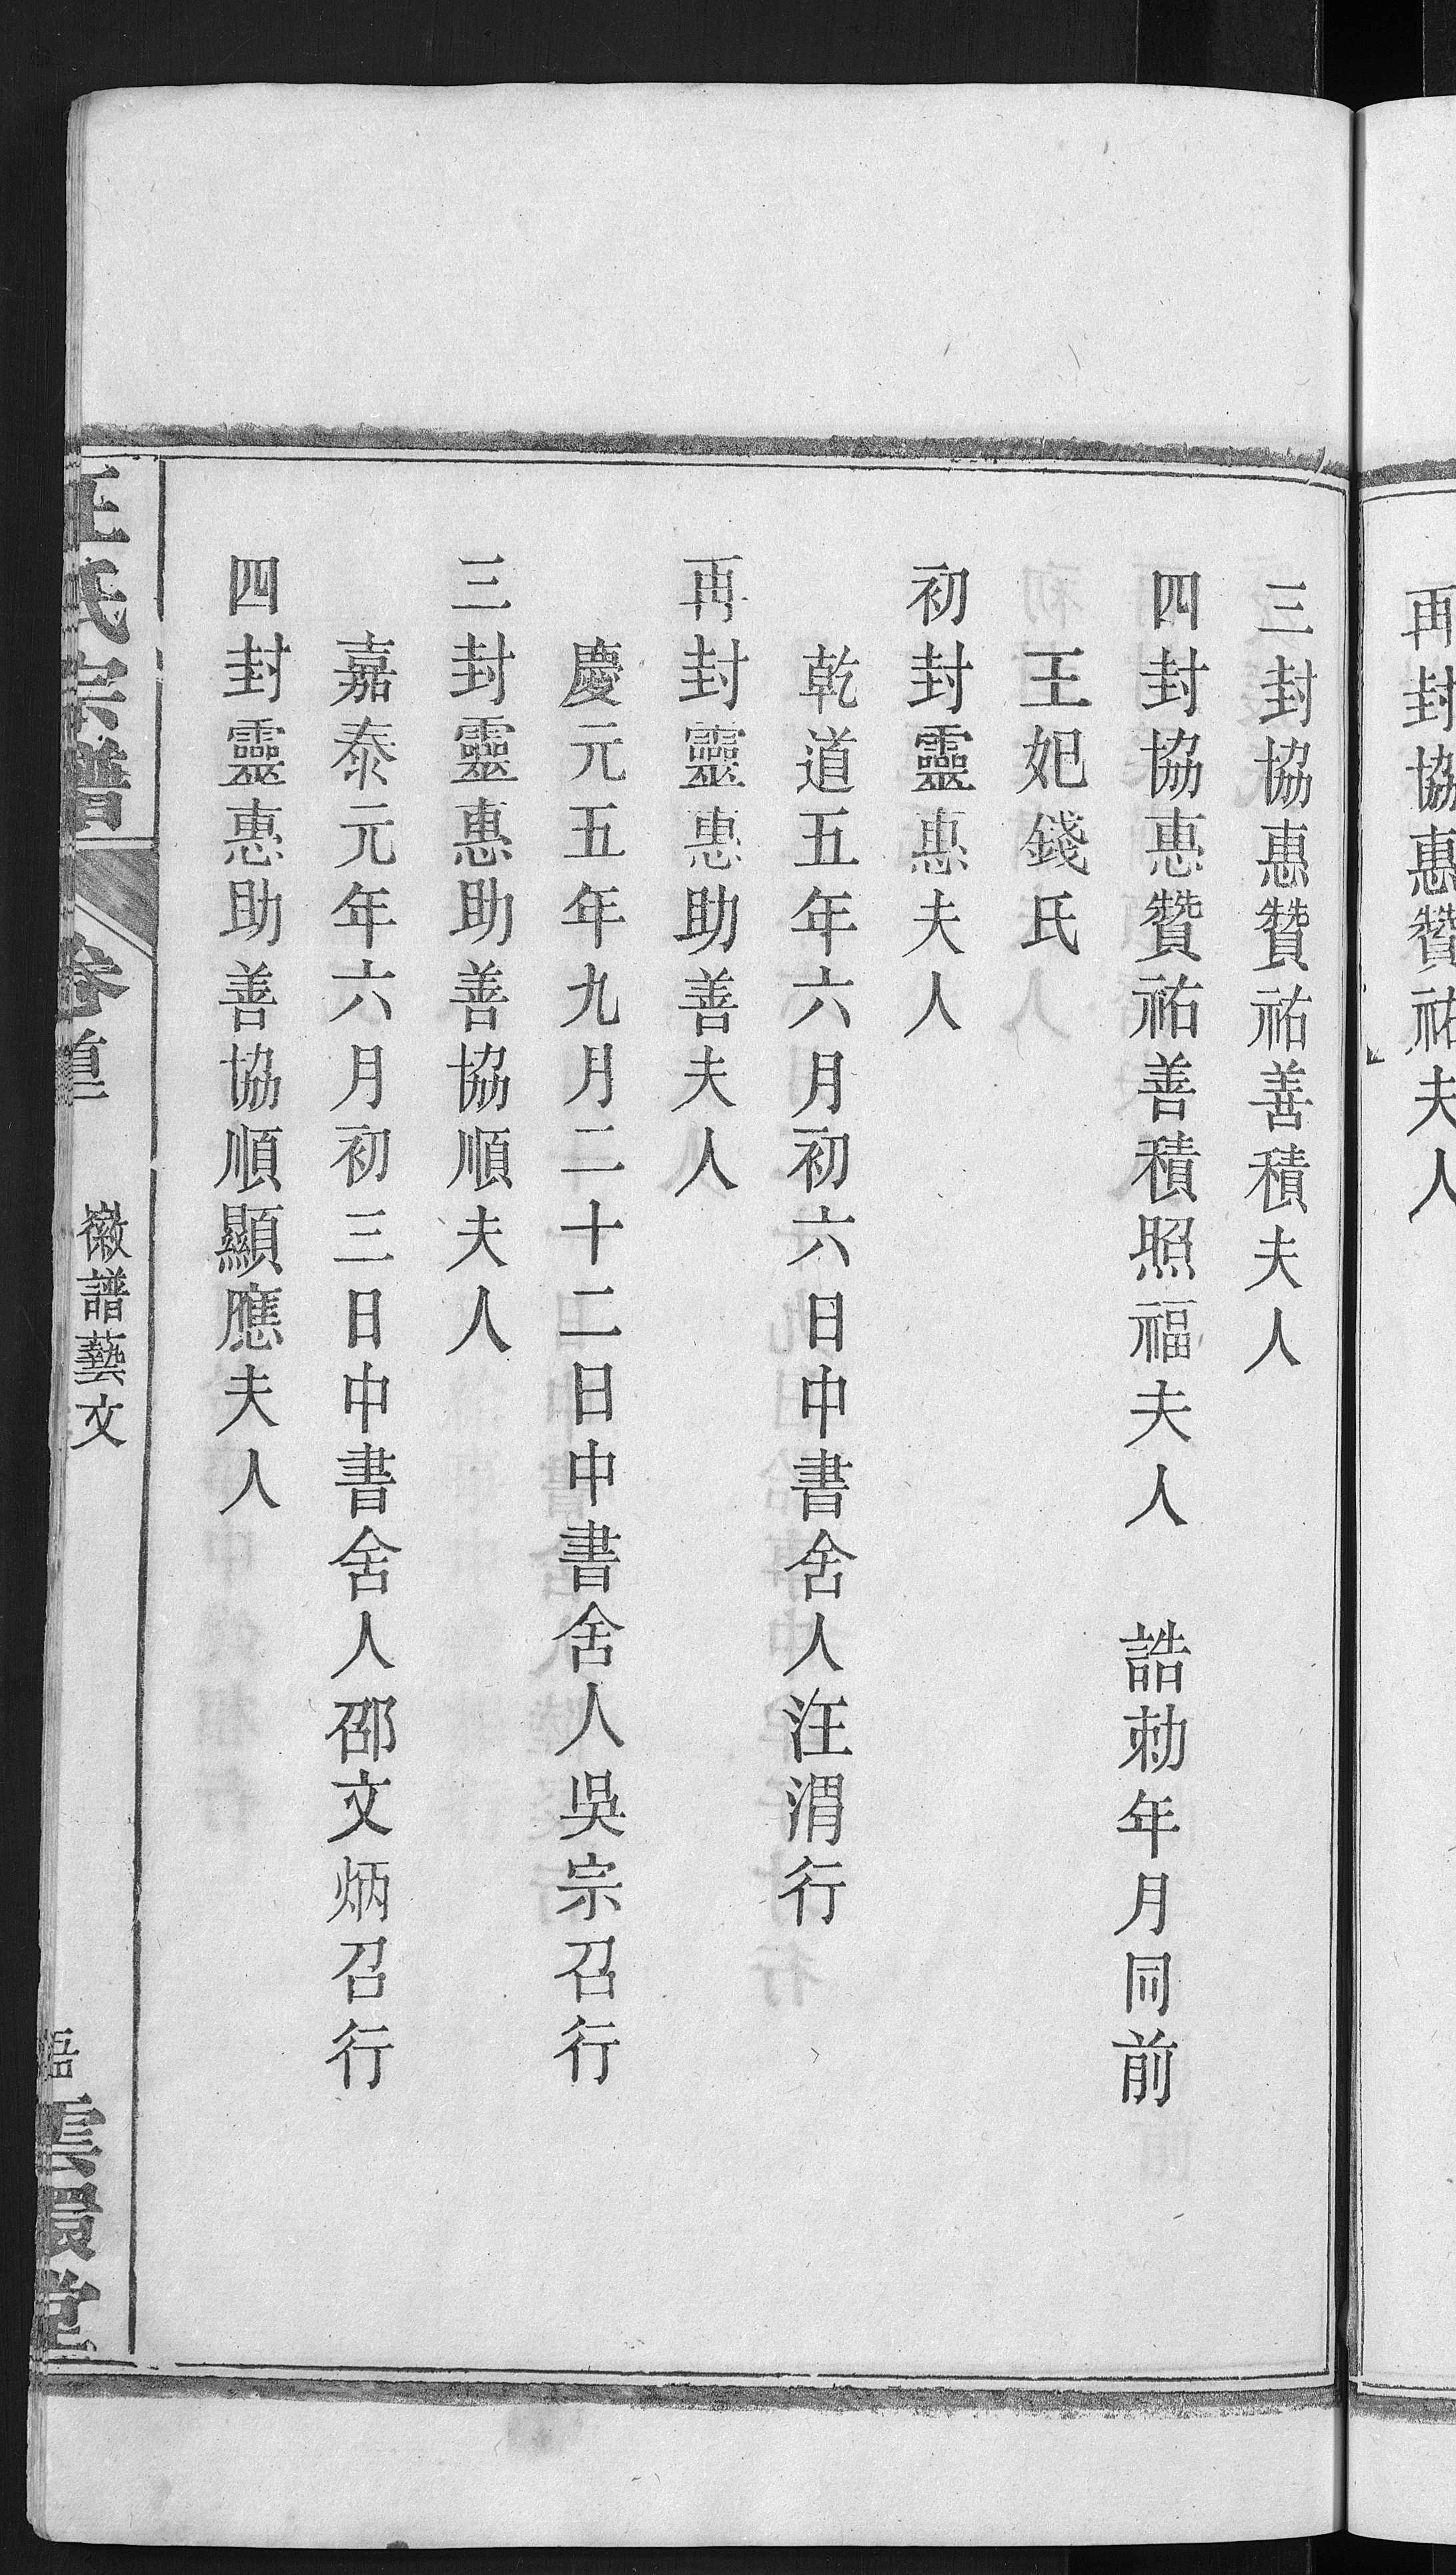 再封協惠贊祐夫人
三封協惠贊祐善積夫人
四封協惠贊祐善積照福夫人　誥勅年月同前
王妃錢氏
初封靈惠夫人
乾道五年六月初六日中書舍人汪涓行
再封靈惠助善夫人
慶元五年九月二十二日中書舍人吳宗召行
三封靈惠助善協順夫人
嘉泰元年六月初三日中書舍人邵文炳召行
四封靈惠助善協順顯應夫人
汪氏宗譜　卷首　徽譜藝文